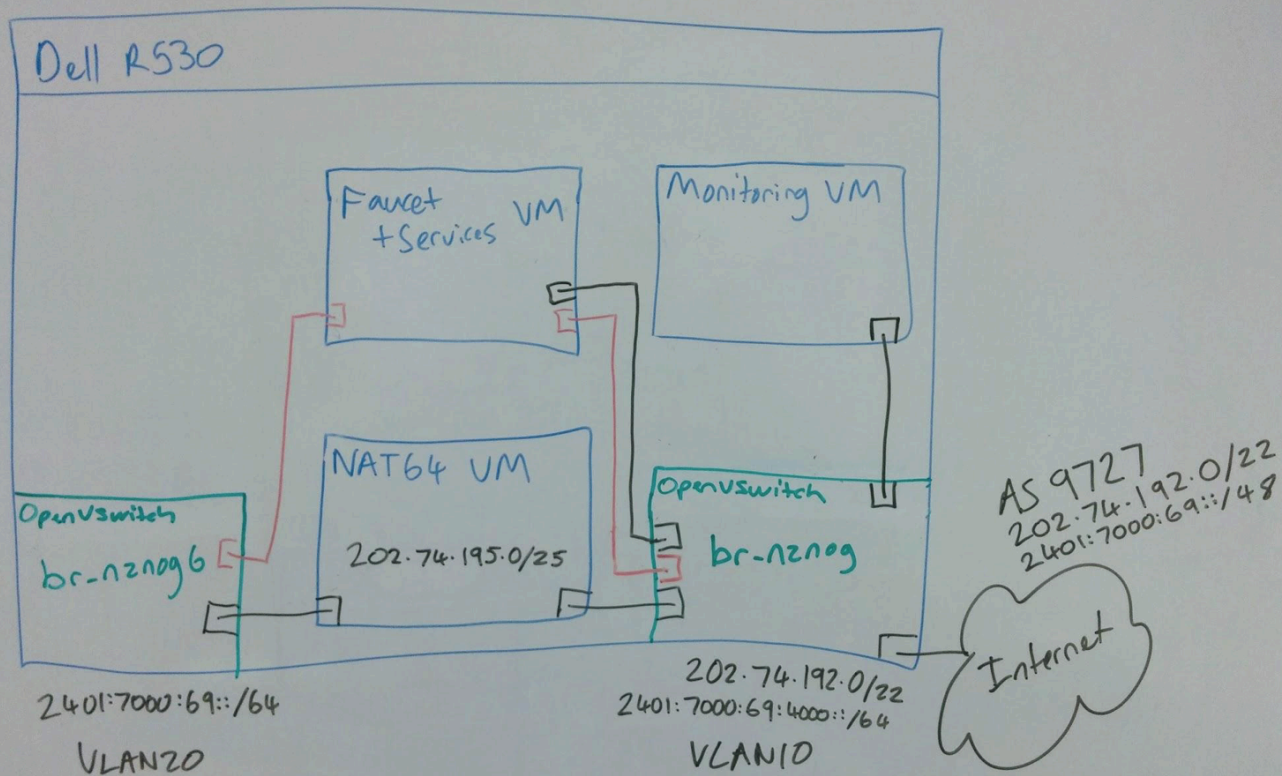 Dell R530
Faucet VM
+Services
Monitoring VM
NAT64 VM
202.74.195.0/25
OpenVSwitch
br-nznog6
OpenVSwitch
br-nznog
AS 9727
202.74.192.0/22
2401:7000:69::/48
Internet
2401:7000:69::/64
VLAN20
202.74.192.0/22
2401:7000:69:4000::/64
VLAN10